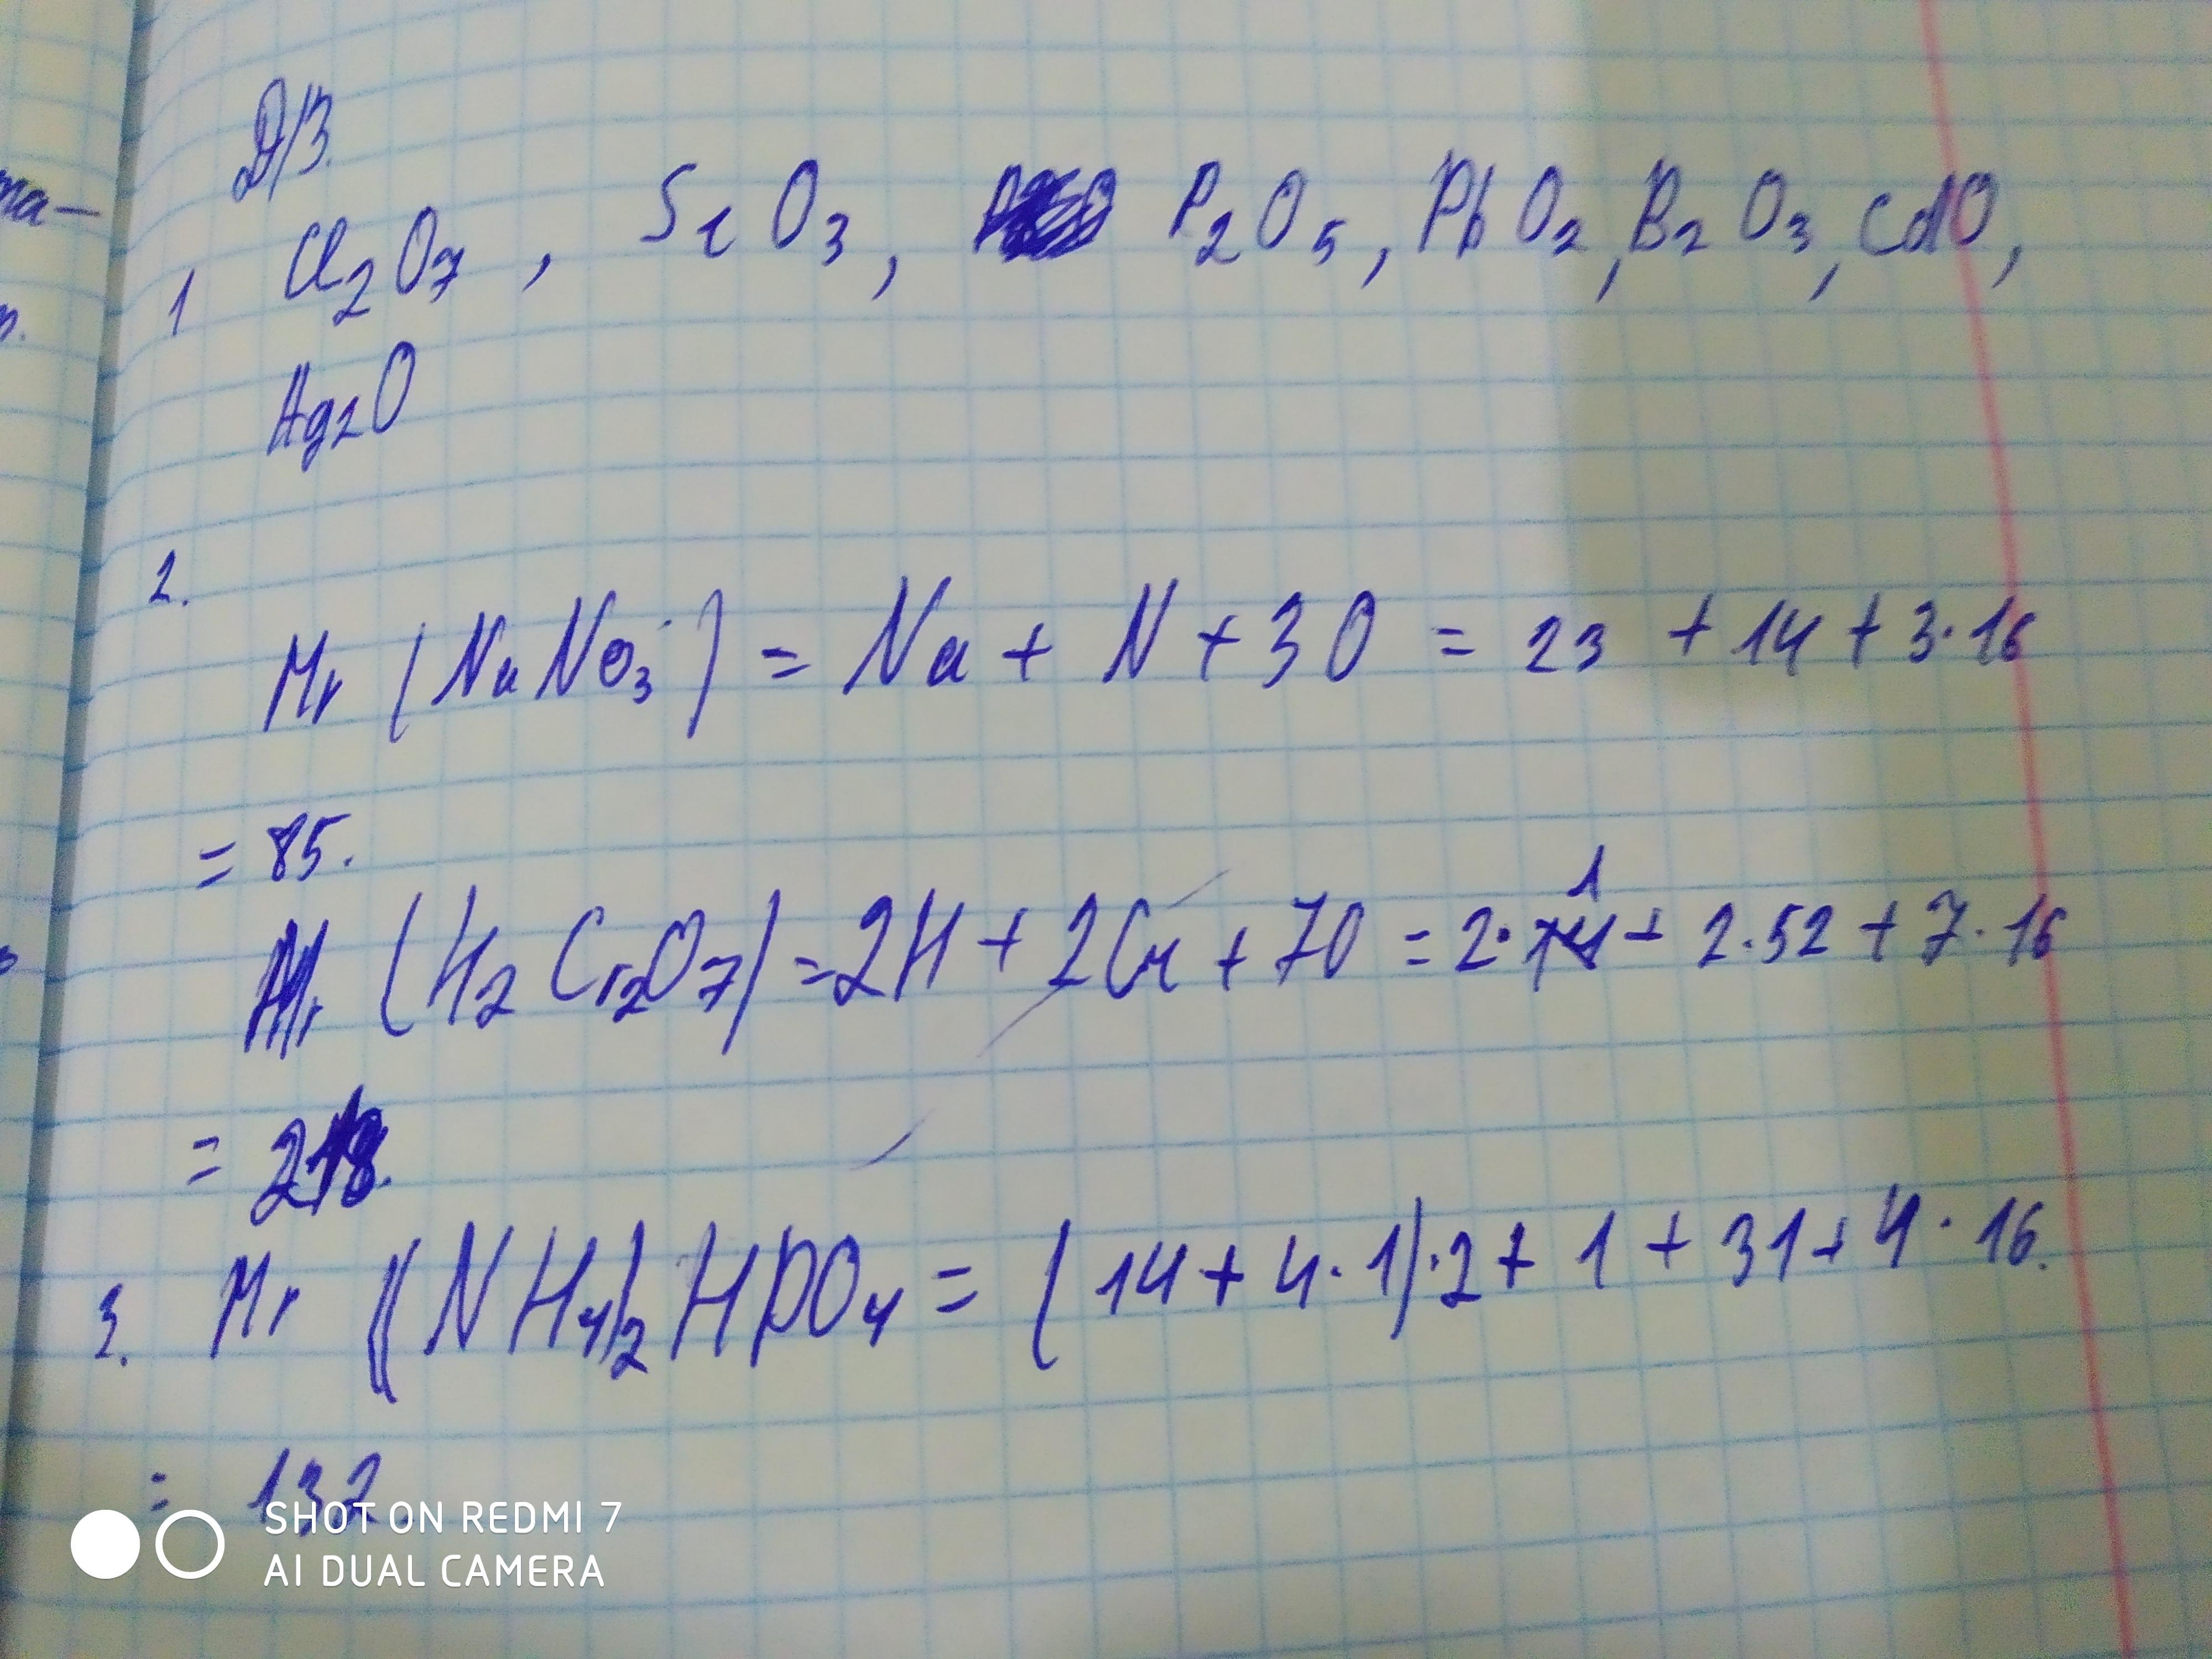 та-
Д/З.
1 Cl₂O₇, SeO₃, P₂O₅, PbO₂, B₂O₃, CdO,
Ag₂O
2.
Mr (NaNO₃) = Na + N + 3O = 23 + 14 + 3·16
= 85.
Mr (H₂Cr₂O₇) = 2H + 2Cr + 7O = 2·1 + 2·52 + 7·16
= 218.
3. Mr ((NH₄)₂HPO₄ = (14 + 4·1)·2 + 1 + 31 + 4·16.
= 132
SHOT ON REDMI 7
AI DUAL CAMERA